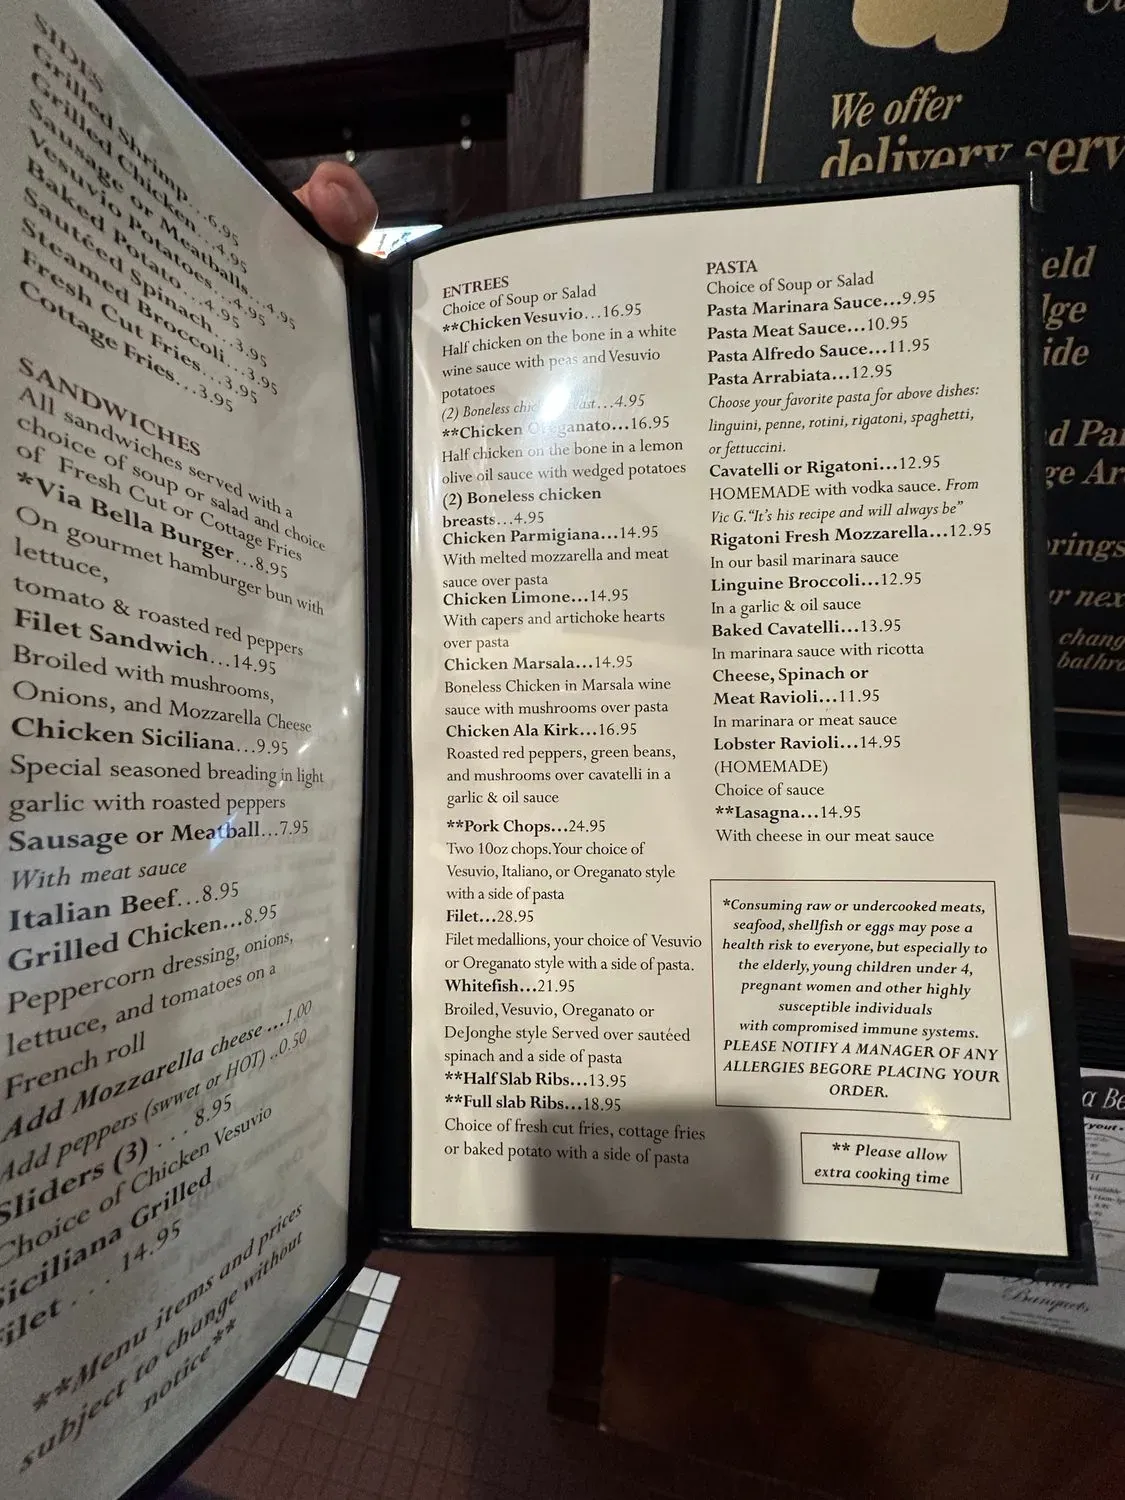 SIDES
Grilled Shrimp...6.95
Grilled Chicken...4.95
Sausage or Meatballs...4.95
Vesuvio Potatoes...4.95
Baked Potato...4.95
Sautéed Spinach...3.95
Steamed Broccoli...3.95
Fresh Cut Fries...3.95
Cottage Fries...3.95
SANDWICHES
All sandwiches served with a
choice of soup or salad and choice
of Fresh Cut or Cottage Fries
*Via Bella Burger...8.95
On gourmet hamburger bun with
lettuce,
tomato & roasted red peppers
Filet Sandwich...14.95
Broiled with mushrooms,
Onions, and Mozzarella Cheese
Chicken Siciliana...9.95
Special seasoned breading in light
garlic with roasted peppers
Sausage or Meatball...7.95
With meat sauce
Italian Beef...8.95
Grilled Chicken...8.95
Peppercorn dressing, onions,
lettuce, and tomatoes on a
French roll
Add Mozzarella cheese ...1.00
Add peppers (swwet or HOT) ..0.50
Sliders (3) . . . 8.95
Choice of Chicken Vesuvio
Siciliana Grilled
Filet . . . 14.95
**Menu items and prices
subject to change without
notice**
ENTREES
Choice of Soup or Salad
**Chicken Vesuvio...16.95
Half chicken on the bone in a white
wine sauce with peas and Vesuvio
potatoes
(2) Boneless chicken breast...4.95
**Chicken Oreganato...16.95
Half chicken on the bone in a lemon
olive oil sauce with wedged potatoes
(2) Boneless chicken
breasts...4.95
Chicken Parmigiana...14.95
With melted mozzarella and meat
sauce over pasta
Chicken Limone...14.95
With capers and artichoke hearts
over pasta
Chicken Marsala...14.95
Boneless Chicken in Marsala wine
sauce with mushrooms over pasta
Chicken Ala Kirk...16.95
Roasted red peppers, green beans,
and mushrooms over cavatelli in a
garlic & oil sauce
**Pork Chops...24.95
Two 10oz chops.Your choice of
Vesuvio, Italiano, or Oreganato style
with a side of pasta
Filet...28.95
Filet medallions, your choice of Vesuvio
or Oreganato style with a side of pasta.
Whitefish...21.95
Broiled, Vesuvio, Oreganato or
DeJonghe style Served over sautéed
spinach and a side of pasta
**Half Slab Ribs...13.95
**Full slab Ribs...18.95
Choice of fresh cut fries, cottage fries
or baked potato with a side of pasta
PASTA
Choice of Soup or Salad
Pasta Marinara Sauce...9.95
Pasta Meat Sauce...10.95
Pasta Alfredo Sauce...11.95
Pasta Arrabiata...12.95
Choose your favorite pasta for above dishes:
linguini, penne, rotini, rigatoni, spaghetti,
or fettuccini.
Cavatelli or Rigatoni...12.95
HOMEMADE with vodka sauce. From
Vic G."It's his recipe and will always be"
Rigatoni Fresh Mozzarella...12.95
In our basil marinara sauce
Linguine Broccoli...12.95
In a garlic & oil sauce
Baked Cavatelli...13.95
In marinara sauce with ricotta
Cheese, Spinach or
Meat Ravioli...11.95
In marinara or meat sauce
Lobster Ravioli...14.95
(HOMEMADE)
Choice of sauce
**Lasagna...14.95
With cheese in our meat sauce
*Consuming raw or undercooked meats,
seafood, shellfish or eggs may pose a
health risk to everyone, but especially to
the elderly, young children under 4,
pregnant women and other highly
susceptible individuals
with compromised immune systems.
PLEASE NOTIFY A MANAGER OF ANY
ALLERGIES BEGORE PLACING YOUR
ORDER.
** Please allow
extra cooking time
We offer
delivery serv
eld
dge
ide
d Pa
ge Ar
rings
r nex
chang
bathro
a Be
Banquets